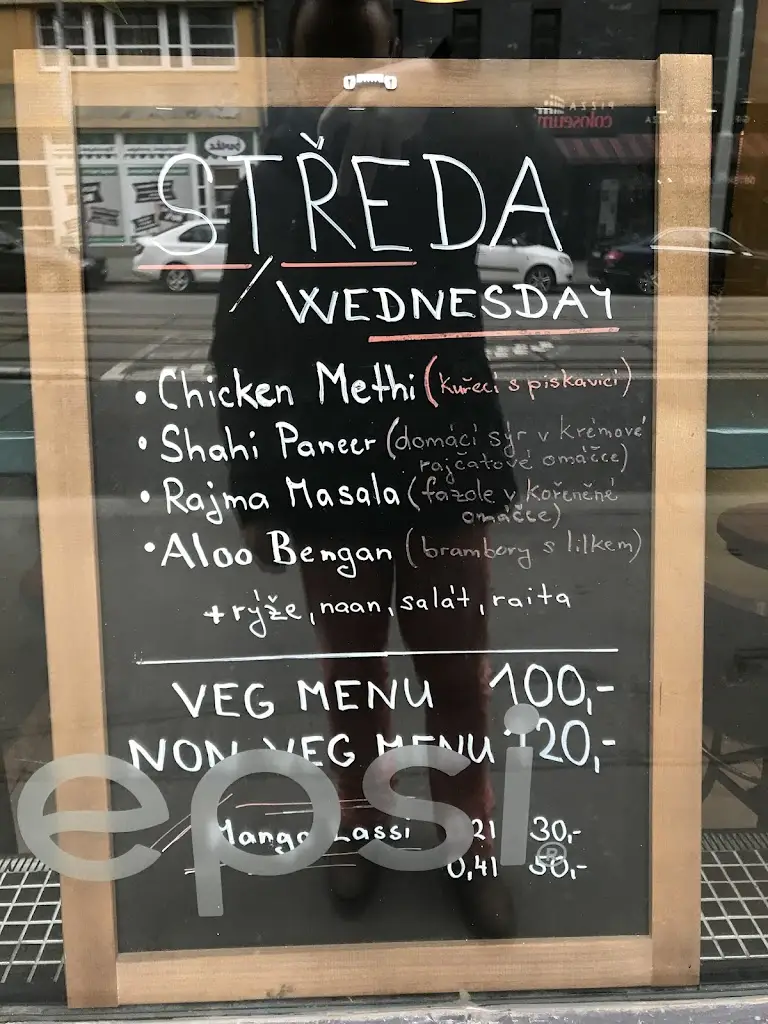 PIZZA
coloseum
STŘEDA
/ WEDNESDAY
• Chicken Methi (kuřecí s piskavicí)
• Shahi Paneer (domácí sýr v krémové
rajčatové omáčce)
• Rajma Masala (fazole v kořeněné
omáčce)
• Aloo Bengan (brambory s lilkem)
+ rýže, naan, salát, raita
VEG MENU 100,-
NON VEG MENU 120,-
epsi®
Mango Lassi 0,2l 30,-
0,4l 50,-